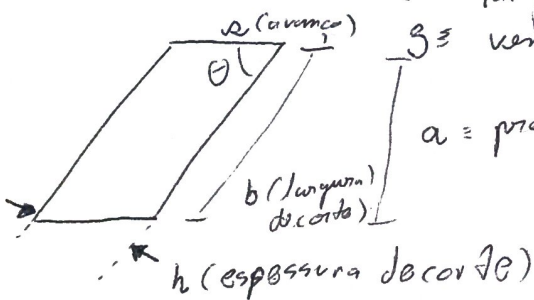 s (avanço)
θ
g ≡ ve
a ≡ pro
b (largura)
de corte)
h (espessura de corte)